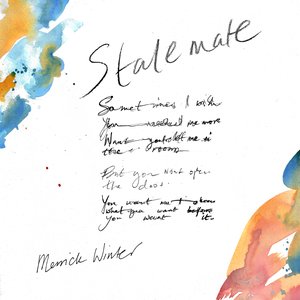 Stalemate
Sometimes I wish
You needed me more
Want you left me in
the room
But you wont open
the door.
You want me to know
what you want before
you want it.
Merrick Winter